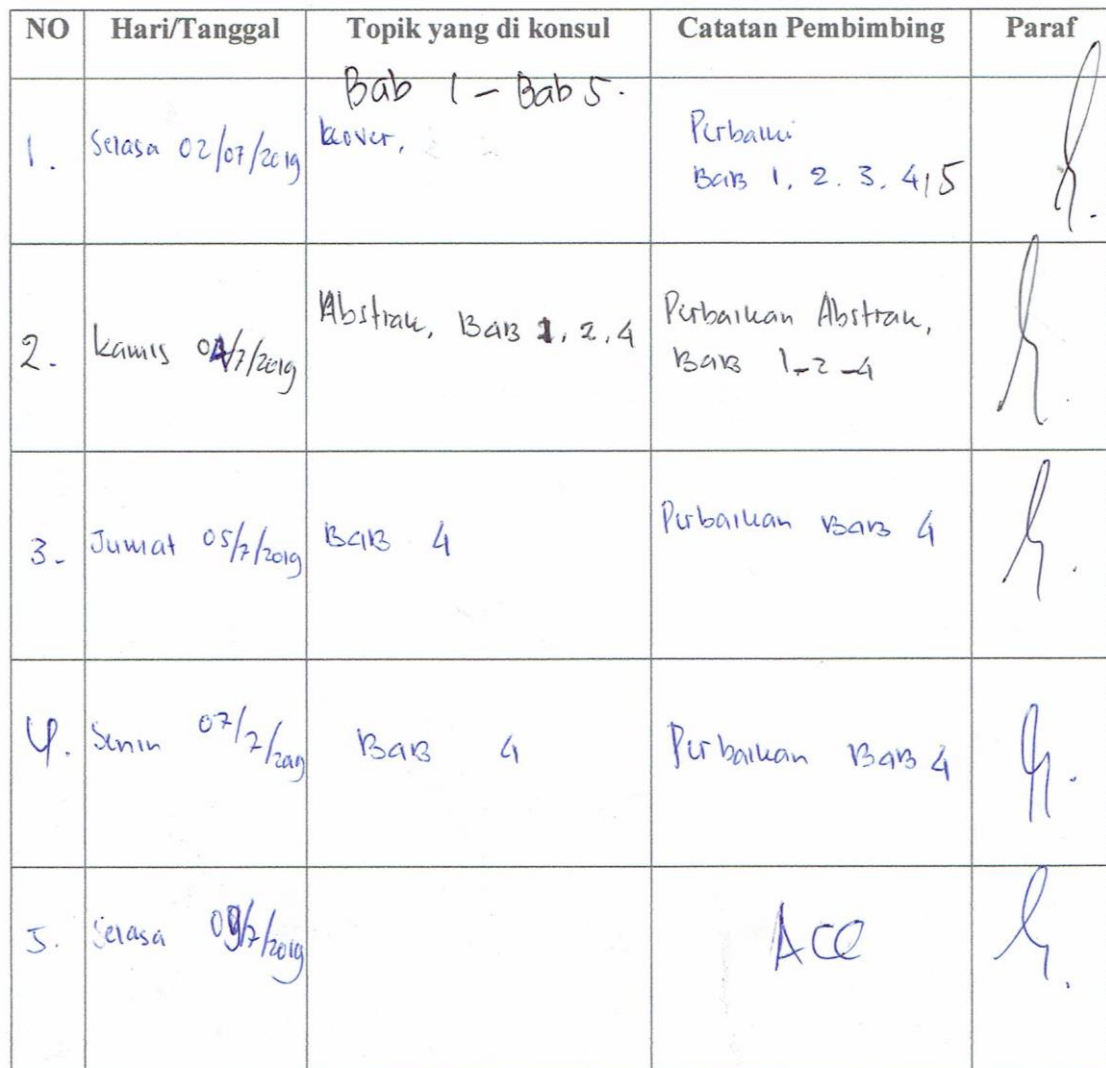 NO Hari/Tanggal Topik yang di konsul Catatan Pembimbing Paraf
Bab 1 – Bab 5.
1. Selasa 02/07/2019 kover, Perbaiki
BAB 1. 2. 3. 4, 5
2. Kamis 04/7/2019 Abstrak, BAB 1, 2, 4 Perbaikan Abstrak,
BAB 1-2-4
3. Jumat 05/7/2019 BAB 4 Perbaikan BAB 4
4. Senin 07/7/2019 BAB 4 Perbaikan BAB 4
5. Selasa 09/7/2019 ACC